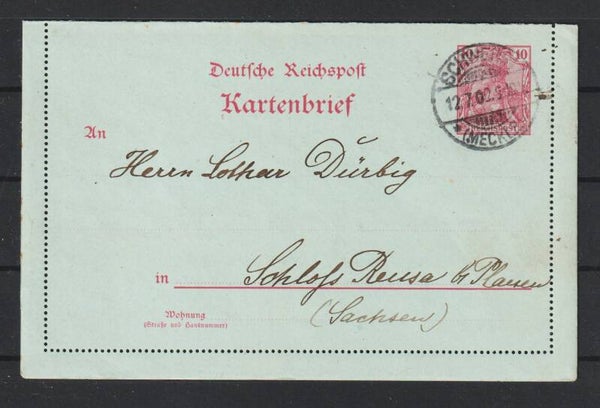 Deutsche Reichspost
Kartenbrief
10
12.7.02.
(MECKL
An
Herrn Lothar Dürbig
in Schloß Reusa b/Plauen
(Sachsen)
Wohnung
(Straße und Hausnummer)